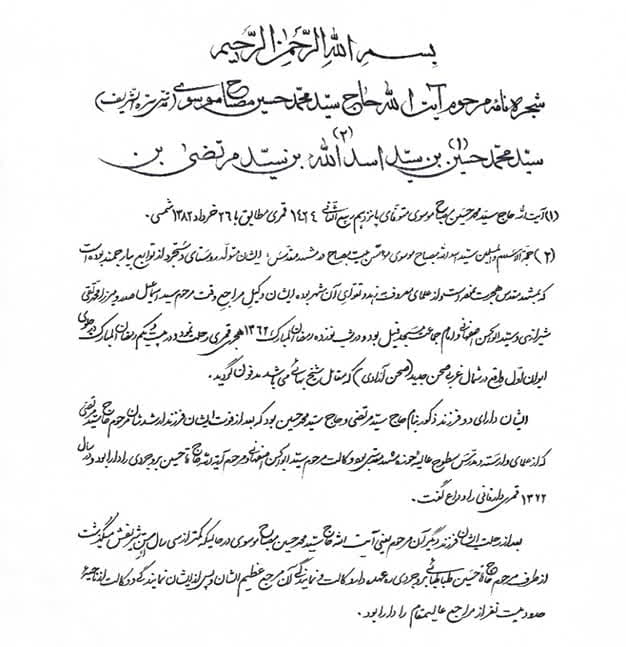 بسم الله الرحمن الرحیم
شجره نامه مرحوم آیت الله حاج سید محمد حسین مصباح موسوی (قدس سره الشریف)
سید محمد حسین (۱) بن سید اسد الله (۲) بن سید مرتضی بن
(۱) آیت الله حاج سید محمد حسین مصباح موسوی متوفای پانزدهم ربیع الثانی ۱۴۲۴ قمری مطابق با ۲۶ خرداد ۱۳۸۲ شمسی.
(۲) حجة الاسلام والمسلمین سید اسدالله مصباح موسوی مؤسس بیت مصباح در مشهد مقدس، ایشان متولد روستای دستجرد از توابع بیارجمند بوده است
که بمشهد مقدس هجرت نموده است و از علمای معروف زهد و تقوای آن شهر بوده ایشان وکیل مراجع وقت مرحوم سید اسماعیل صدر و میرزا محمد تقی
شیرازی و سید ابوالحسن اصفهانی و امام جماعت مسجد فیل بود و در شب نوزده رمضان المبارک ۱۳۶۲ هجری قمری رحلت نمود و در بیست و یکم رمضان المبارک در جلوی
ایوان اول واقع در شمال غربی صحن جدید (صحن آزادی) که مقابل شیخ بهائی می باشد مدفون گردید.
ایشان دارای دو فرزند ذکور بنام حاج سید مرتضی و حاج سید محمد حسین بود که بعد از فوت ایشان فرزند ارشدشان مرحوم حاج سید مرتضی
که از علمای وارسته و مدرس سطوح عالیه حوزه مشهد مقدس بود وکالت مرحوم سید ابوالحسن اصفهانی و مرحوم آیة الله حاج آقا حسین بروجردی را دارا بود و در سال
۱۳۷۲ قمری دار فانی را وداع گفت.
بعد از رحلت ایشان فرزند دیگر آن مرحوم یعنی آیت الله حاج سید محمد حسین مصباح موسوی در حالیکه کمتر از سی سال از سن شریفش میگذشت
از طرف مرحوم حاج آقا حسین طباطبائی بروجردی عهده دار وکالت و نمایندگی آن مرجع عظیم الشان و پس از ایشان نمایندگی و وکالت از ناحیه
حدود بیست نفر از مراجع عالیمقام را دارا بود.